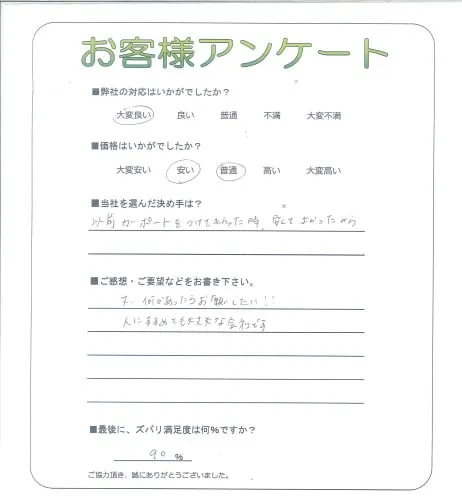 お客様アンケート
■弊社の対応はいかがでしたか？
大変良い 良い 普通 不満 大変不満
■価格はいかがでしたか？
大変安い 安い 普通 高い 大変高い
■当社を選んだ決め手は？
以前カーポートをつけてもらった時、安くてよかったから
■ご感想・ご要望などをお書き下さい。
又、何かあったらお願いしたい!!
人にすすめても大丈夫な会社です
■最後に、ズバリ満足度は何％ですか？
90 %
ご協力頂き、誠にありがとうございました。